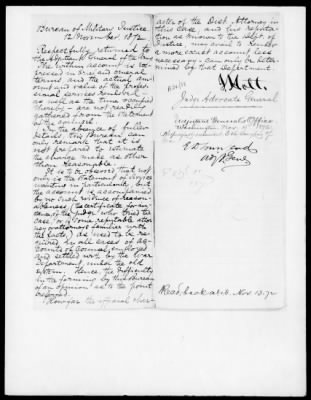 Bureau of Military Justice
12 November 1872.
Respectfully returned to
the Adjutant General of the Army
The within account is ex-
pressed in brief and general
terms, and the actual am-
ount and value of the profes-
sional services rendered,
as well as the time occupied
thereby — are not readily
gathered from the statement
as thus made.
In the absence of fuller
details this Bureau can
only remark that it is
not prepared to estimate
the charge made as other
than reasonable.
It is to be observed that not
only is the statement of service
wanting in particularity, but
the account is accompanied
by no such evidence of reason-
ableness, (the certificate for in-
stance of the judge who tried the
case, or of some reputable attor-
ney or attorneys familiar with
the facts,) as used to be re-
quired in all cases of ac-
counts of counsel employed
and settled with by the War
Department, under the old
system. Hence the difficulty
in the forming by this bureau
of an opinion as to the point
discussed.
How far the official char-
acter of the Dist Attorney in
this case, and his reputa-
tion as known to the Dept. of
Justice, may avail to render
a more exact account less
necessary — can only be deter-
mined by that Department.
J Holt.
Judge Advocate General
Adjutant General's Office
Washington, Nov. 1872
Respectfully returned to the
E D Townsend
Adjt Genl
Read back a.t.b. Nov 13. 72